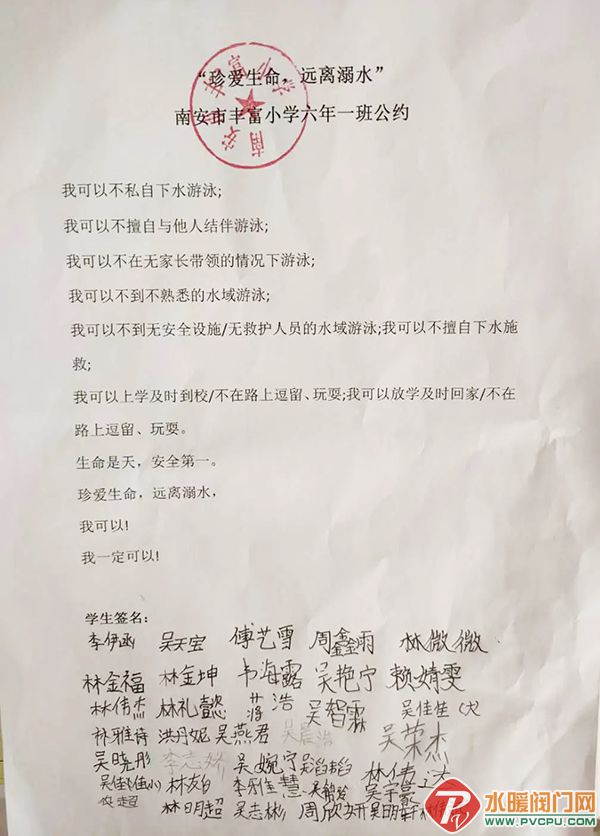 “珍爱生命，远离溺水”
南安市丰富小学六年一班公约
我可以不私自下水游泳;
我可以不擅自与他人结伴游泳;
我可以不在无家长带领的情况下游泳;
我可以不到不熟悉的水域游泳;
我可以不到无安全设施/无救护人员的水域游泳;我可以不擅自下水施
救;
我可以上学及时到校/不在路上逗留、玩耍;我可以放学及时回家/不在
路上逗留、玩耍。
生命是天，安全第一。
珍爱生命，远离溺水，
我可以!
我一定可以!
学生签名:
李伊涵 吴天宝 傅艺雪 周鑫雨 林微微
林金福 林金坤 韦海露 吴艳宁 赖婧雯
林伟杰 林礼懿 蒋浩 吴智霖 吴佳佳(大)
林雅诗 洪丹妮 吴燕君 吴晨浩 吴荣杰
吴晓彤 李志娇 吴婉宁 吴滔韬
吴佳佳(小) 李雅慧
林明超 吴志彬 周欣妍
水暖阀门网
WWW.PVCPU.COM